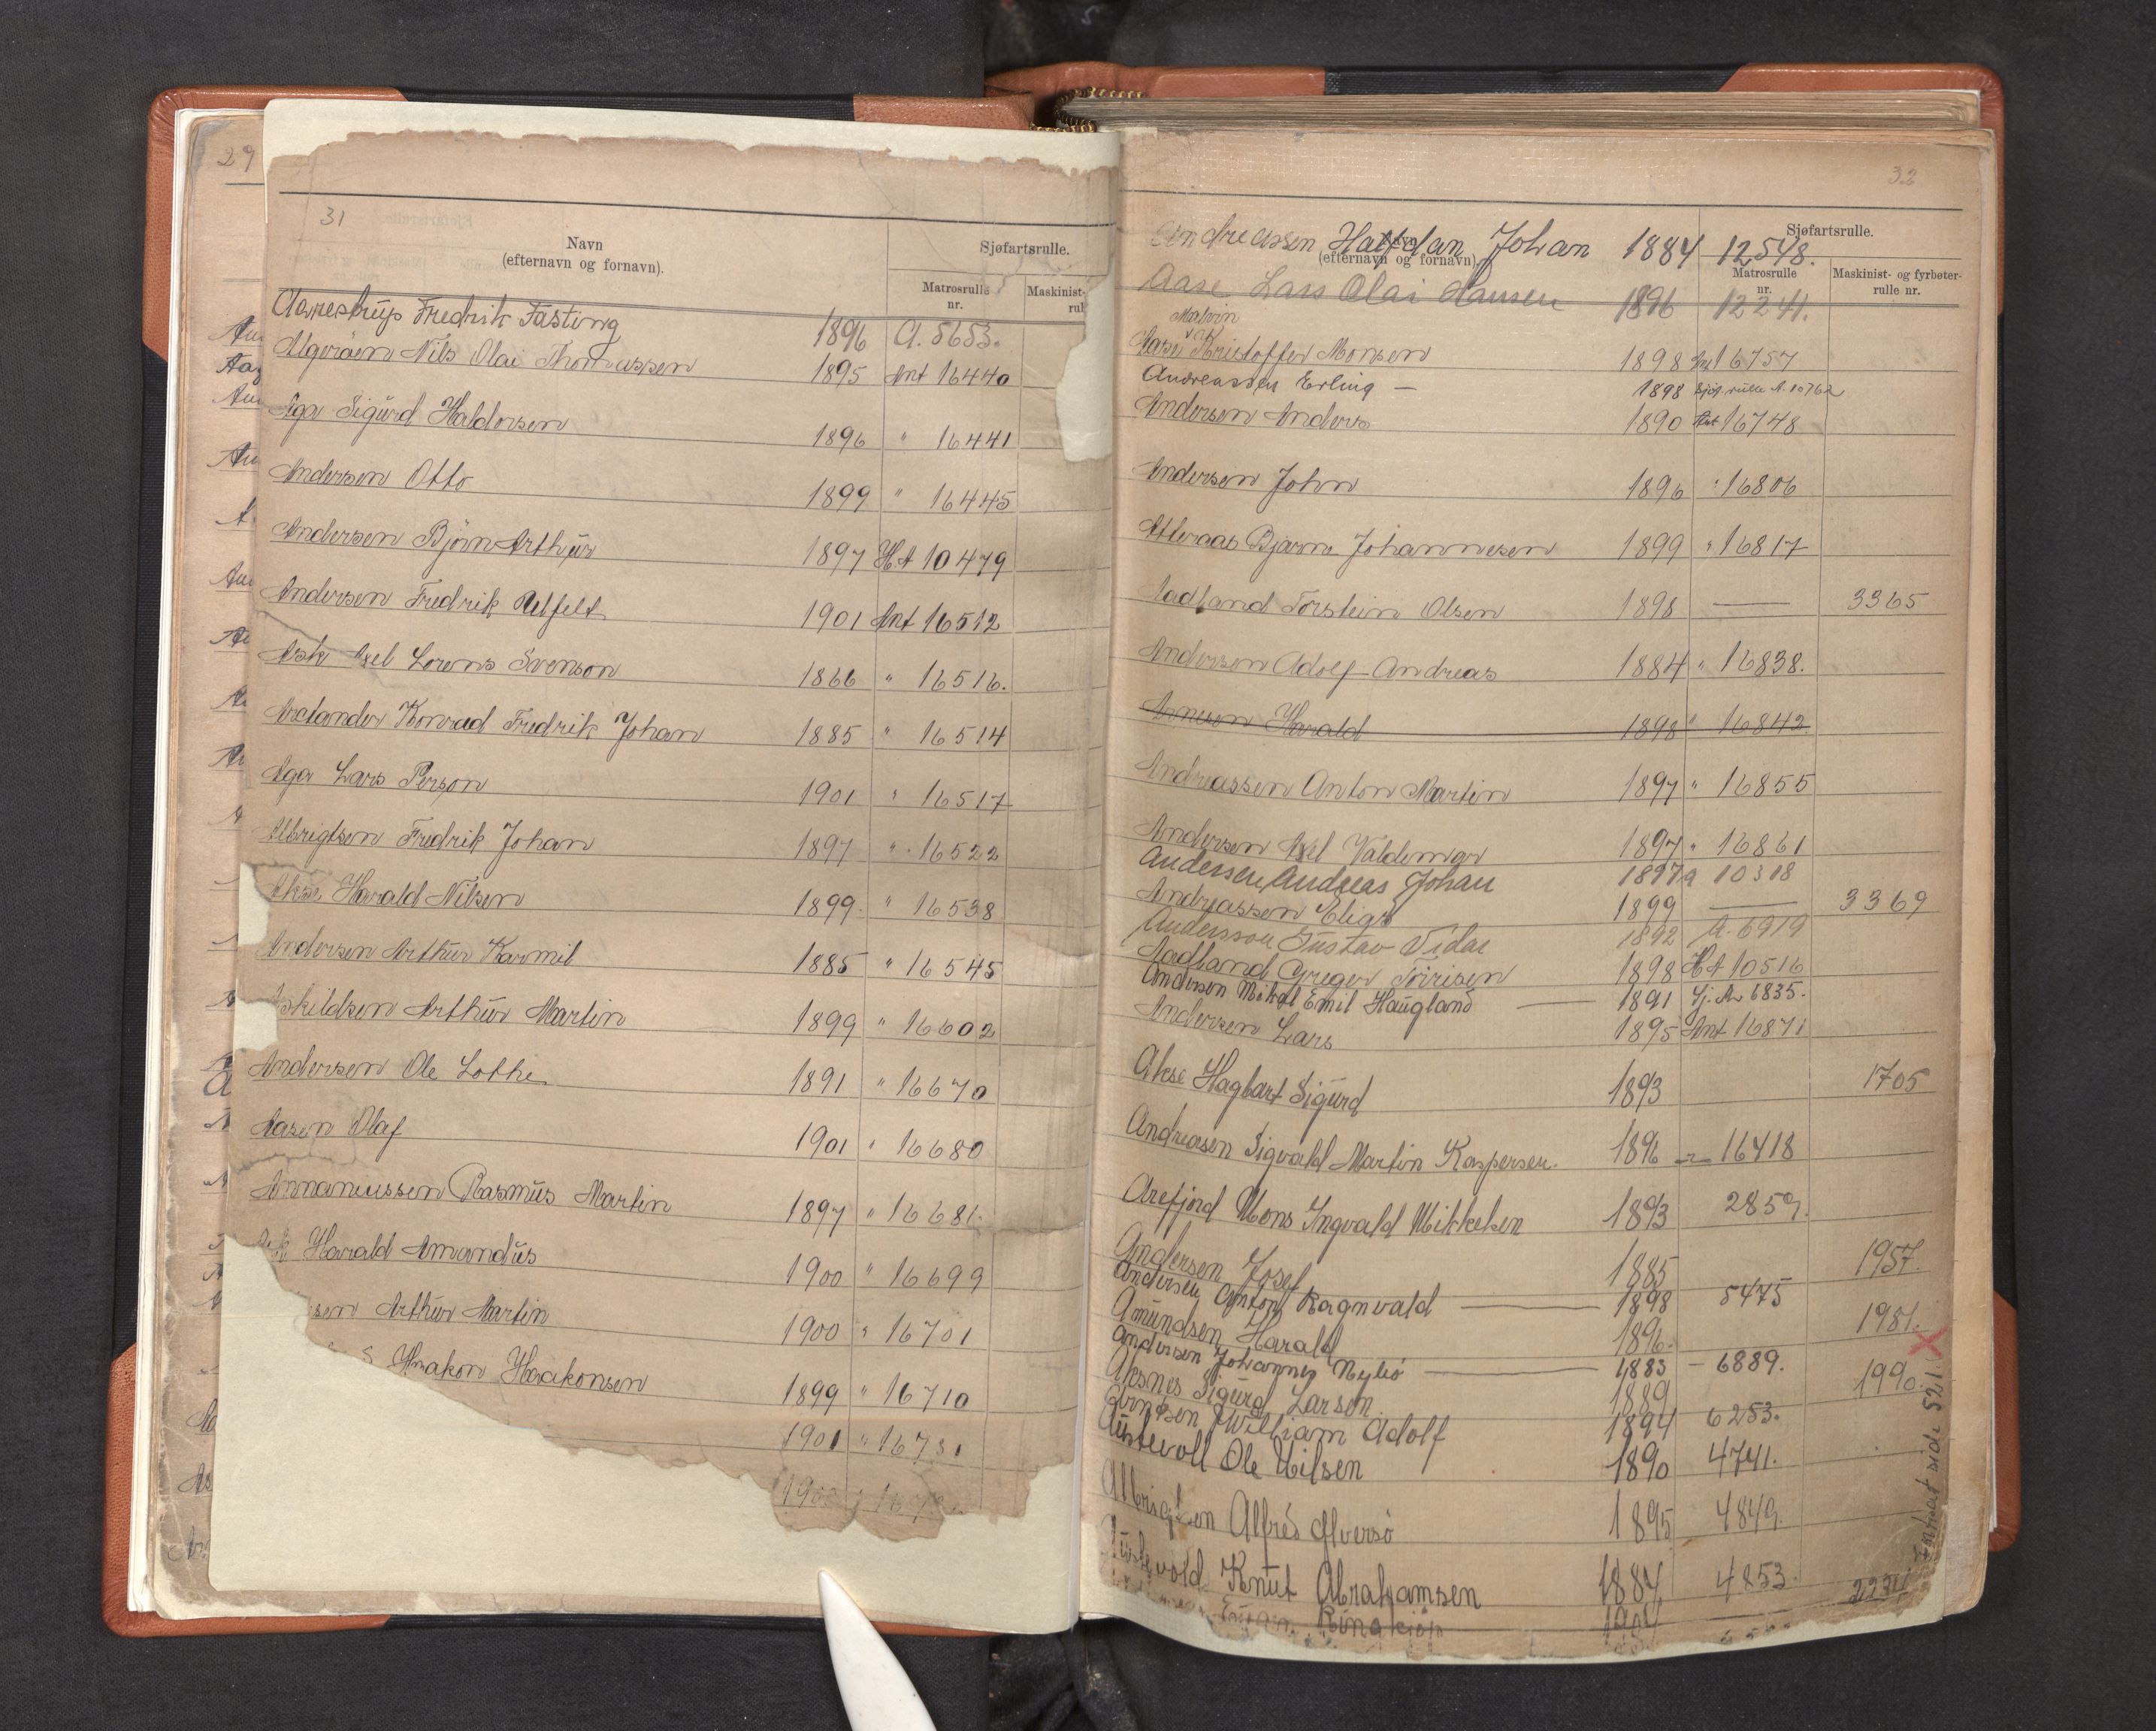 29
31
Navn
(efternavn og fornavn).
Sjøfartsrulle.
Matrosrulle
nr.
Maskinist-
rul
Aarrestrup Fredrik Fasting 1896 A. 5653.
Algeröen Nils Olai Thomassen 1895 Ant 16440
Aga Sigurd Haldorsen 1896 " 16441
Andersen Otto 1899 " 16445
Andersen Björn Arthur 1897 H.A 10479
Andersen Fredrik 1901 Ant 16512
Ask Axel Lorens Svenson 1866 " 16516.
Konrad Fredrik Johan 1885 " 16514
Aga Lars Person 1901 " 16517
Albrigtsen Fredrik Johan 1897 " 16522
Akse Harald Nilsen 1899. " 16538
Andersen Arthur Karmil 1885 " 16545
skildsen Arthur Martin 1899 " 16602
Andersen Ole Lothe 1891 " 16670
Aasen Olaf 1901 " 16680
Rasmus Martin 1897 " 16681
Ask Harald Amandus 1900 " 16699
sen Arthur Martin 1900 " 16701
Haakon Haakonsen 1899 " 16710
1901 " 16731
190
32
Navn
(efternavn og fornavn).
Sjøfartsrulle.
Matrosrulle
nr.
Maskinist- og fyrbøter-
rulle nr.
Andreassen Halfdan Johan 1884 12548.
Aase Lars Olai Hansen 1896 12241.
Malvin
Aase Kristoffer Monsen 1898 Ant 16757
Andreassen Erling — 1898 Sjøf. rulle A. 10762
Andersen Anders 1890 Ant 16748
Andersen John 1896 " 16806
Atleraas Bjarne Johannesen 1899 " 16817
Aadland Torstein Olsen 1898 — 3365
Andersen Adolf Andreas 1884 " 16838.
Arnesen Harald 1898 " 16842
Andreassen Anton Martin 1897 " 16855
Andersen Axel Valdemar 1897 " 16861
Andersen Andreas Johan 1897 A 10318
Andreassen Eligr 1899 — 3369
Andersson Gustav Vidar 1892 A. 6919
Aadland Greger 1898 H A 10516
Andersen Mikal Emil Haugland — 1891 Sj. A 6835.
Andersen Lars 1895 Ant 16871
Akse Hagbart Sigurd 1893 1705
Andreasen Sigvald Martin Kaspersen. 1896 — 16418
Arefjord Mons Ingvald Mikkelsen 1893 2859.
Andersen Josef 1885 1957.
Andersen Anton Ragnvald — 1898 5475
Amundsen Harald 1896. 1981.
Andersen Johannes Nybö — 1883 — 6889.
Aksnes Sigurd Larsen 1889 1990.
Arntsen William Adolf 1894 6253.
Austevoll Ole Nilsen 1890 4741.
Albrigtsen Alfred Alversø 1895 4849.
Austevold Knut Abrahamsen 1884 4853.
2231
Fortsat side 521.